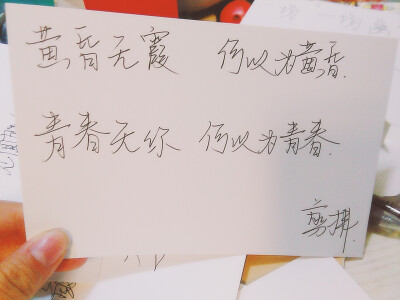 黄昏无霞 何以为黄昏.
青春无你 何以为青春.